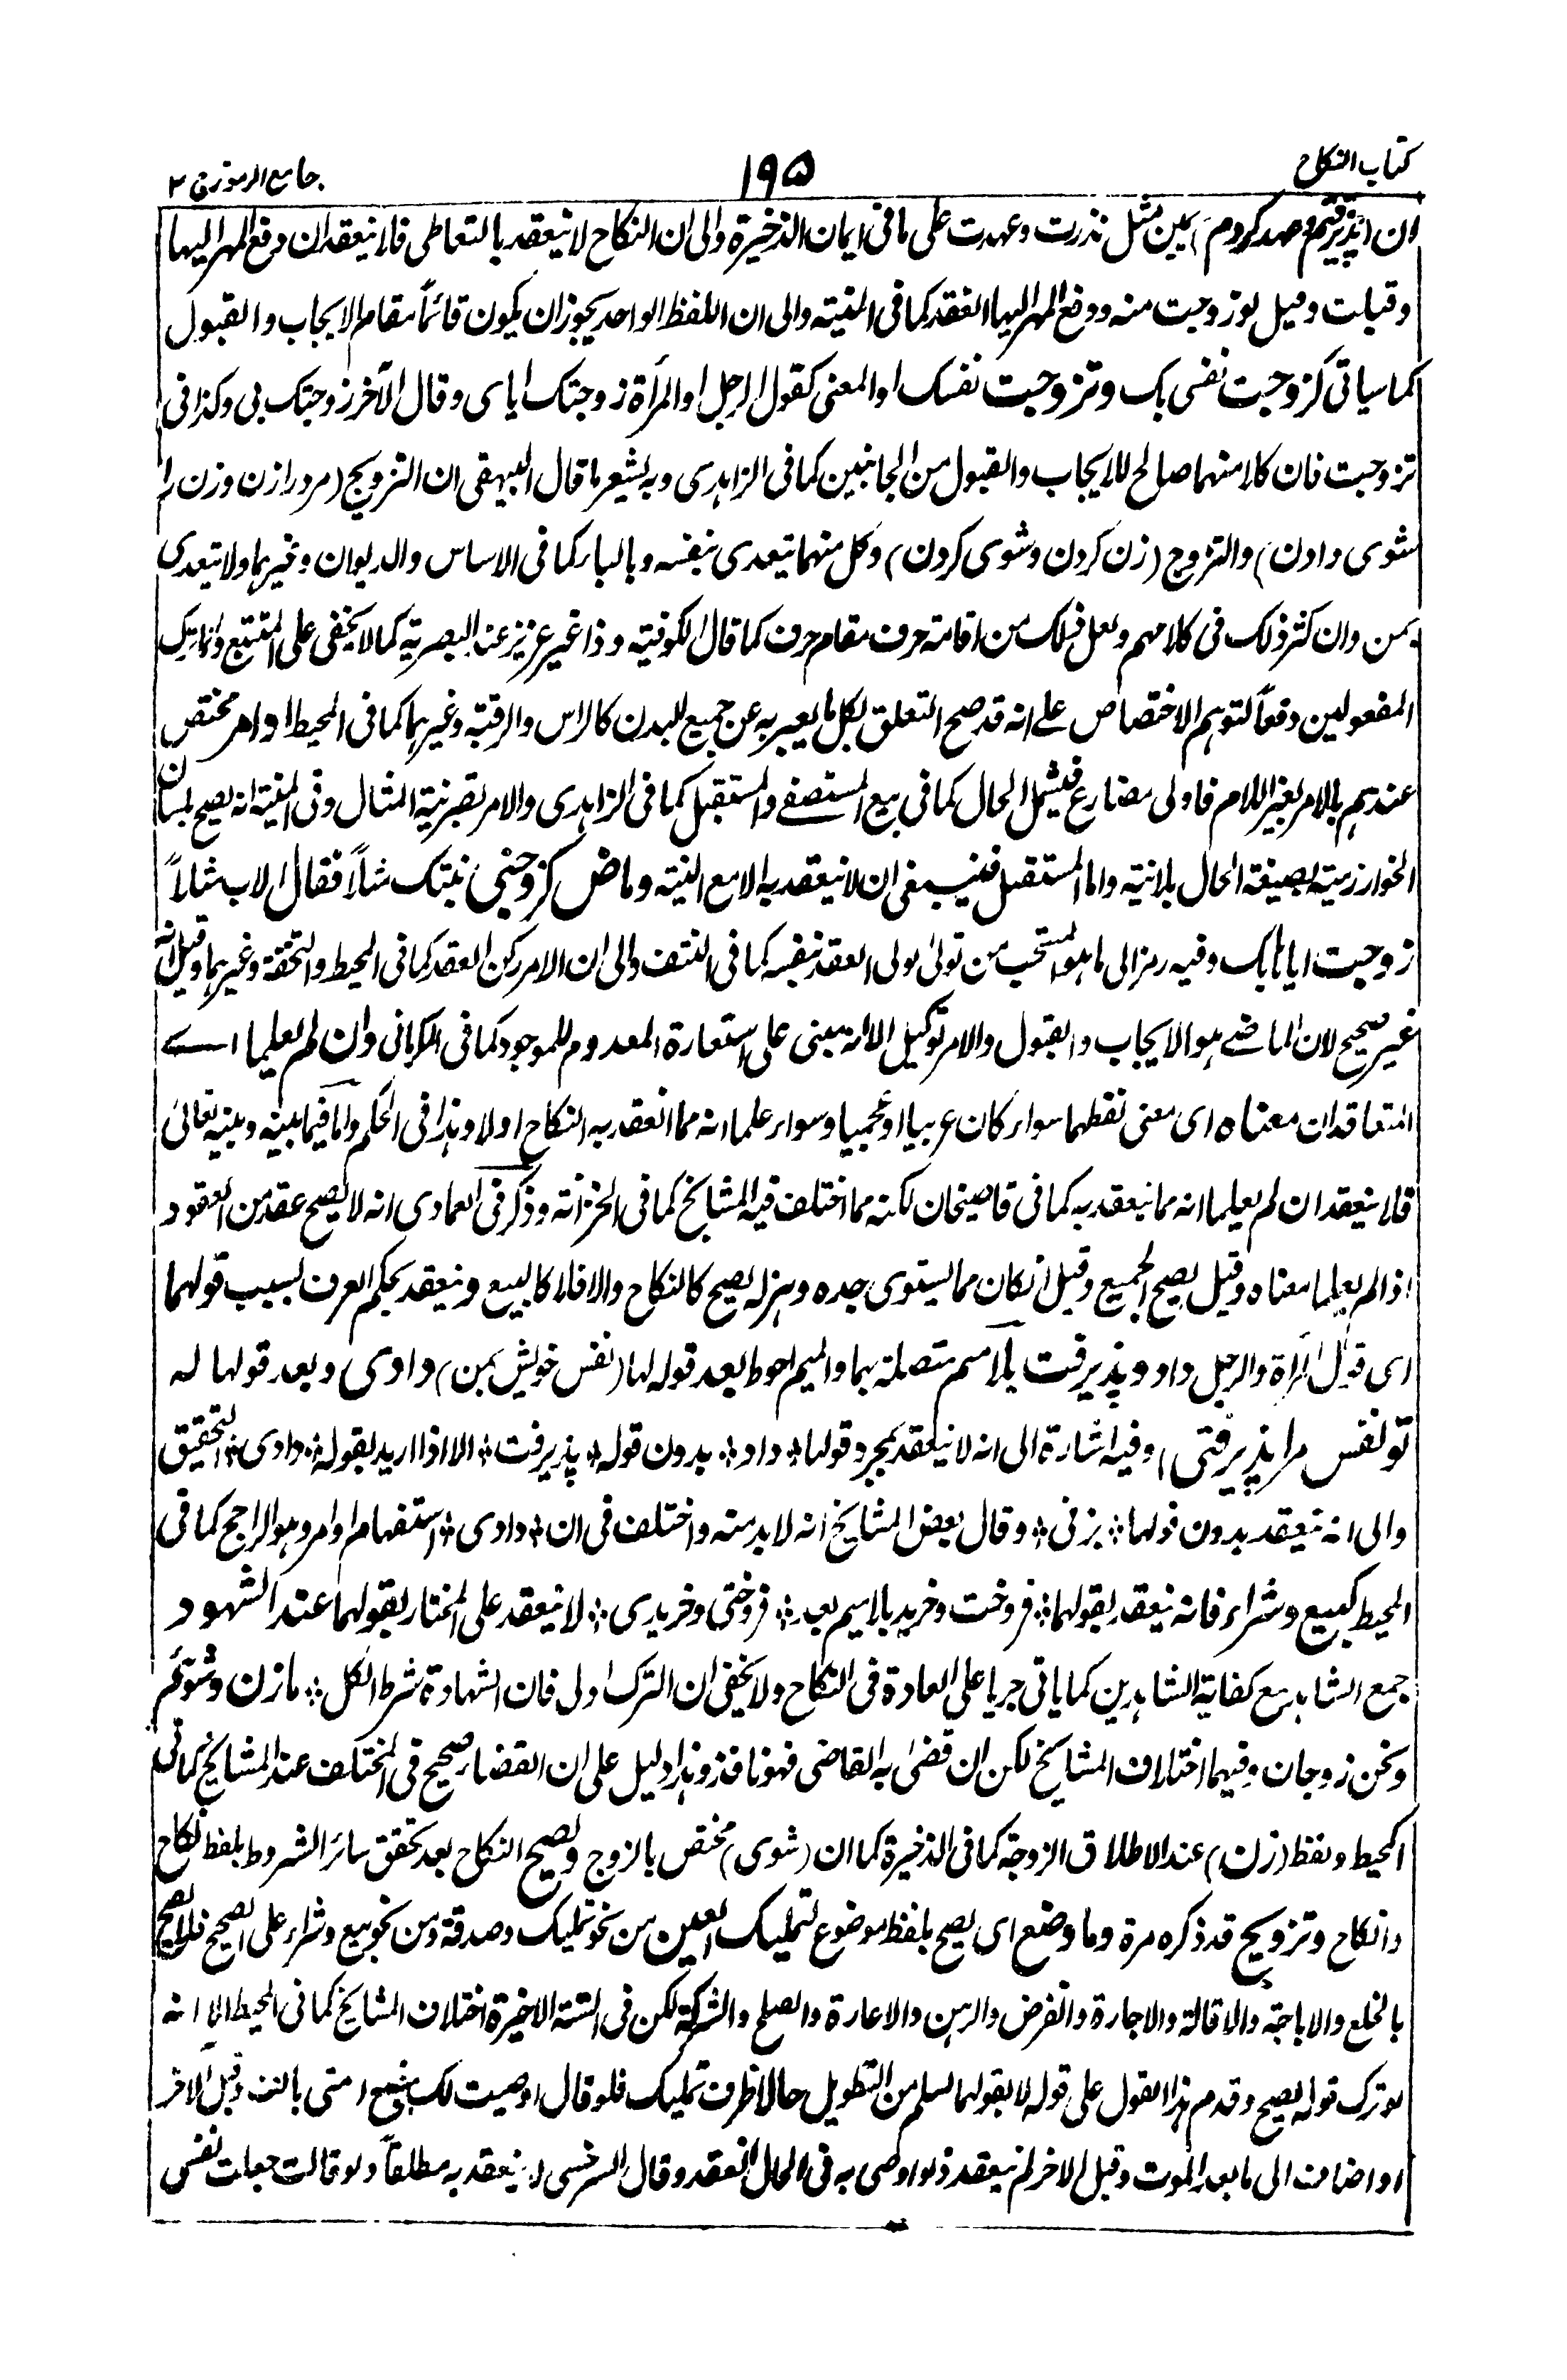 كتاب النكاح
١٩٥
جامع الرموز ج ٢
ان (پذيرفتم وعهد كردم) يمين مثل نذرت وعهدت على ما فى ايمان الذخيرة والى ان النكاح لا ينعقد بالتعاطى فلا ينعقد ان دفع المهر اليها
وقبلت وقيل لو زوجت منه ودفع المهر اليها انعقد كما فى المنية والى ان اللفظ الواحد يجوز ان يكون قائماً مقام الايجاب والقبول
كما سياتى كزوجت نفسى بك وتزوجت نفسك او المعنى كقول الرجل او المرأة زوجتك اياى وقال الآخر زوجتك بى وكذا فى
تزوجت فان كلا منهما صالح للايجاب والقبول من الجانبين كما فى الزاهدى وبه يشعر ما قال البيهقى ان التزويج (مرد را زن وزن را
شوى دادن) والتزوج (زن كردن وشوى كردن) وكل منهما يتعدى بنفسه وبالباء كما فى الاساس والديوان وغيرهما ولا يتعدى
بمن وان كثر ذلك فى كلامهم ولعل ذلك من اقامة حرف مقام حرف كما قال الكوفية وذا غير عزيز عند البصرية كما لا يخفى على المتتبع وانما ترك
المفعولين دفعاً لتوهم الاختصاص على انه قد صح التعلق بكل ما يعبر به عن جميع البدن كالراس والرقبة وغيرهما كما فى المحيط او امر مختص
عندهم بالامر بغير اللام فاولى مضارع فيشمل الحال كما فى بيع المستصفى والمستقبل كما فى الزاهدى والامر بقرينة المثال وفى المنية انه يصح بلسان
الخوارزمية بصيغة الحال بلا نية واما المستقبل فينبغى ان لا ينعقد به الا مع النية وماض كزوجنى بنتك مثلاً فقال الاب مثلاً
زوجت اياها بك وفيه رمز الى ما هو المستحب من تولى الولى العقد بنفسه كما فى النتف والى ان الامر ركن العقد كما فى المحيط والتحفة وغيرهما وقيل انه
غير صحيح لان الماضى هو الايجاب والقبول والامر توكيل الا انه مبنى على استعارة المعدوم للموجود كما فى الكرمانى وان لم يعلما اے
المتعاقدان معناه اى معنى لفظهما سواء كان عربيا او عجميا وسواء علما انه مما انعقد به النكاح اولا وهذا فى الحكم واما فيما بينه وبينه تعالى
فلا ينعقد ان لم يعلما انه مما ينعقد به كما فى قاضيخان لكنه مما اختلف فيه المشايخ كما فى الخزانة وذكر فى العمادى انه لا يصح عقد من العقود
اذا لم يعلما معناه وقيل يصح الجميع وقيل ان كان مما يستوى جده وهزله يصح كالنكاح والا فلا كالبيع وينعقد بحكم العرف بسبب قولهما
اى قول المرأة والرجل داد وپذيرفت بلا ميم متصلة بهما والميم احوط بعد قوله لها (نفس خويش بمن) دادى وبعد قولها له
تو نفس مرا پذيرفتى) وفيه اشارة الى انه لا ينعقد بمجرد قولها ٭ داد ٭ بدون قوله ٭ پذيرفت ٭ الا اذا اريد بقوله ٭ دادى ٭ التحقيق
والى انه ينعقد بدون قولها ٭ بزنى ٭ وقال بعض المشايخ انه لا بد منه واختلف فى ان ٭ دادى ٭ استفهام او امر وهو الراجح كما فى
المحيط كبيع وشراء فانه ينعقد بقولهما ٭ فروخت وخريد بلا ميم بعد ٭ فروختى وخريدى ٭ لا ينعقد على المختار بقولهما عند الشهود
جمع الشاهد مع كفاية الشاهدين كما ياتى جريا على العادة فى النكاح ولا يخفى ان الترك اولى فان الشهادة شرط الكل ٭ ما زن وشوئم
ونحن زوجان وفيهما اختلاف المشايخ لكن ان قضى به القاضى فهو نافذ وهذا دليل على ان القضاء صحيح فى المختلف عند المشايخ كما فى
المحيط ولفظ (زن) عند الاطلاق الزوجة كما فى الذخيرة كما ان (شوى) مختص بالزوج ويصح النكاح بعد تحقق سائر الشروط بلفظ نكاح
وانكاح وتزويج قد ذكره مرة وما وضع اى يصح بلفظ موضوع لتمليك العين من نحو تمليك وصدقة ومن نحو بيع وشراء على الصحيح فلا يصح
بالخلع والاباحة والاقالة والاجارة والقرض والرهن والاعارة والصلح والشركة لكن فى الستة الاخيرة اختلاف المشايخ كما فى المحيط الا انه
لو ترك قوله يصح وقدم هذا القول على قوله لا بقولهما لسلم من التطويل حالا ظرف تمليك فلو قال اوصيت لك ببضع امتى بالف وقبل الاخر
او اضاف الى ما بعد الموت وقبل الاخر لم ينعقد ولو اوصى به فى الحال انعقد وقال السرخسى لا ينعقد به مطلقاً ولو قالت جعلت نفسى